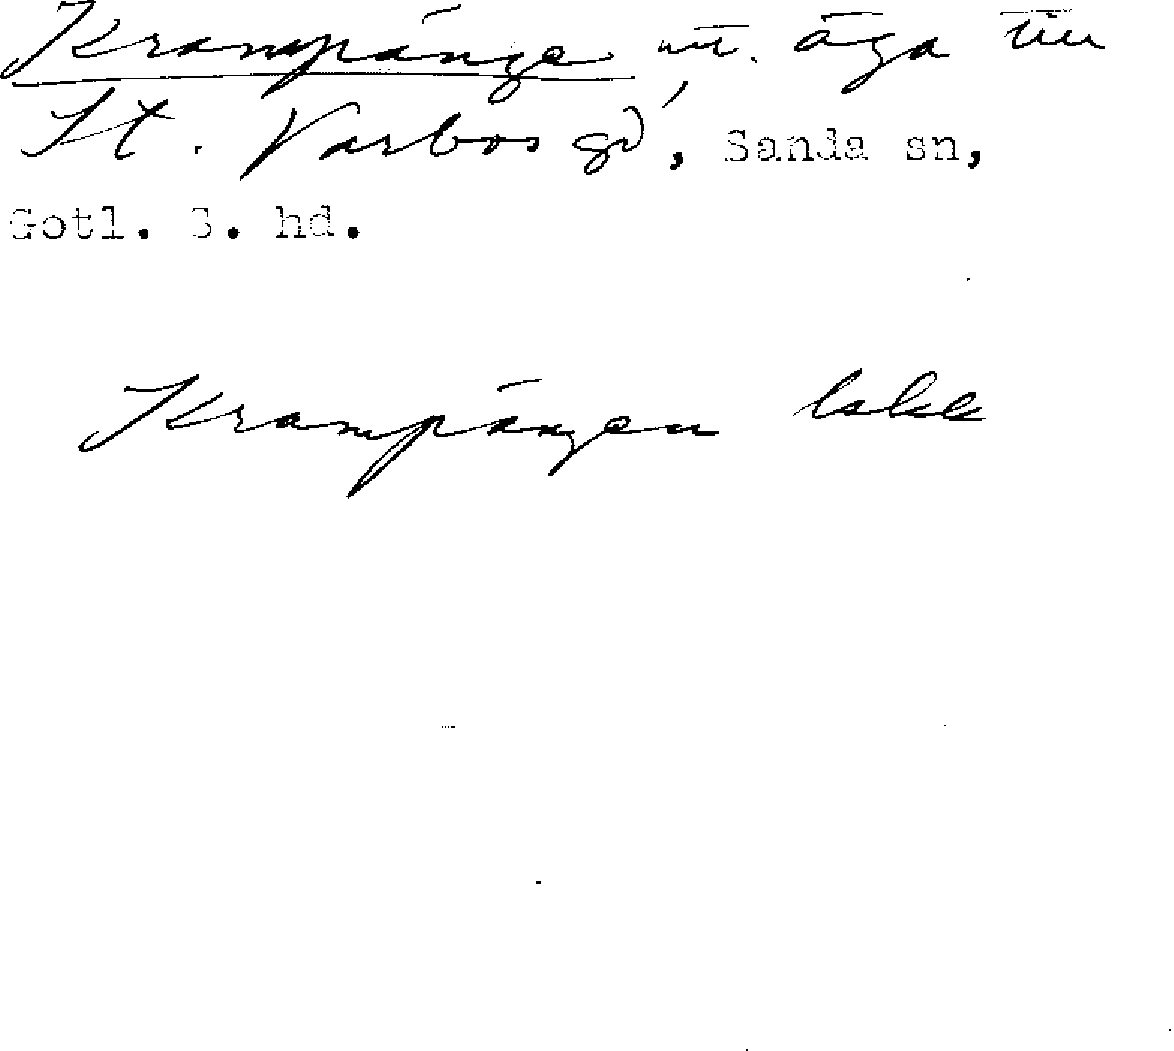 Krampänge utt. äga till
St. Varbos gd, Sanda sn,
Gotl. S. hd.
Krampängen lakk